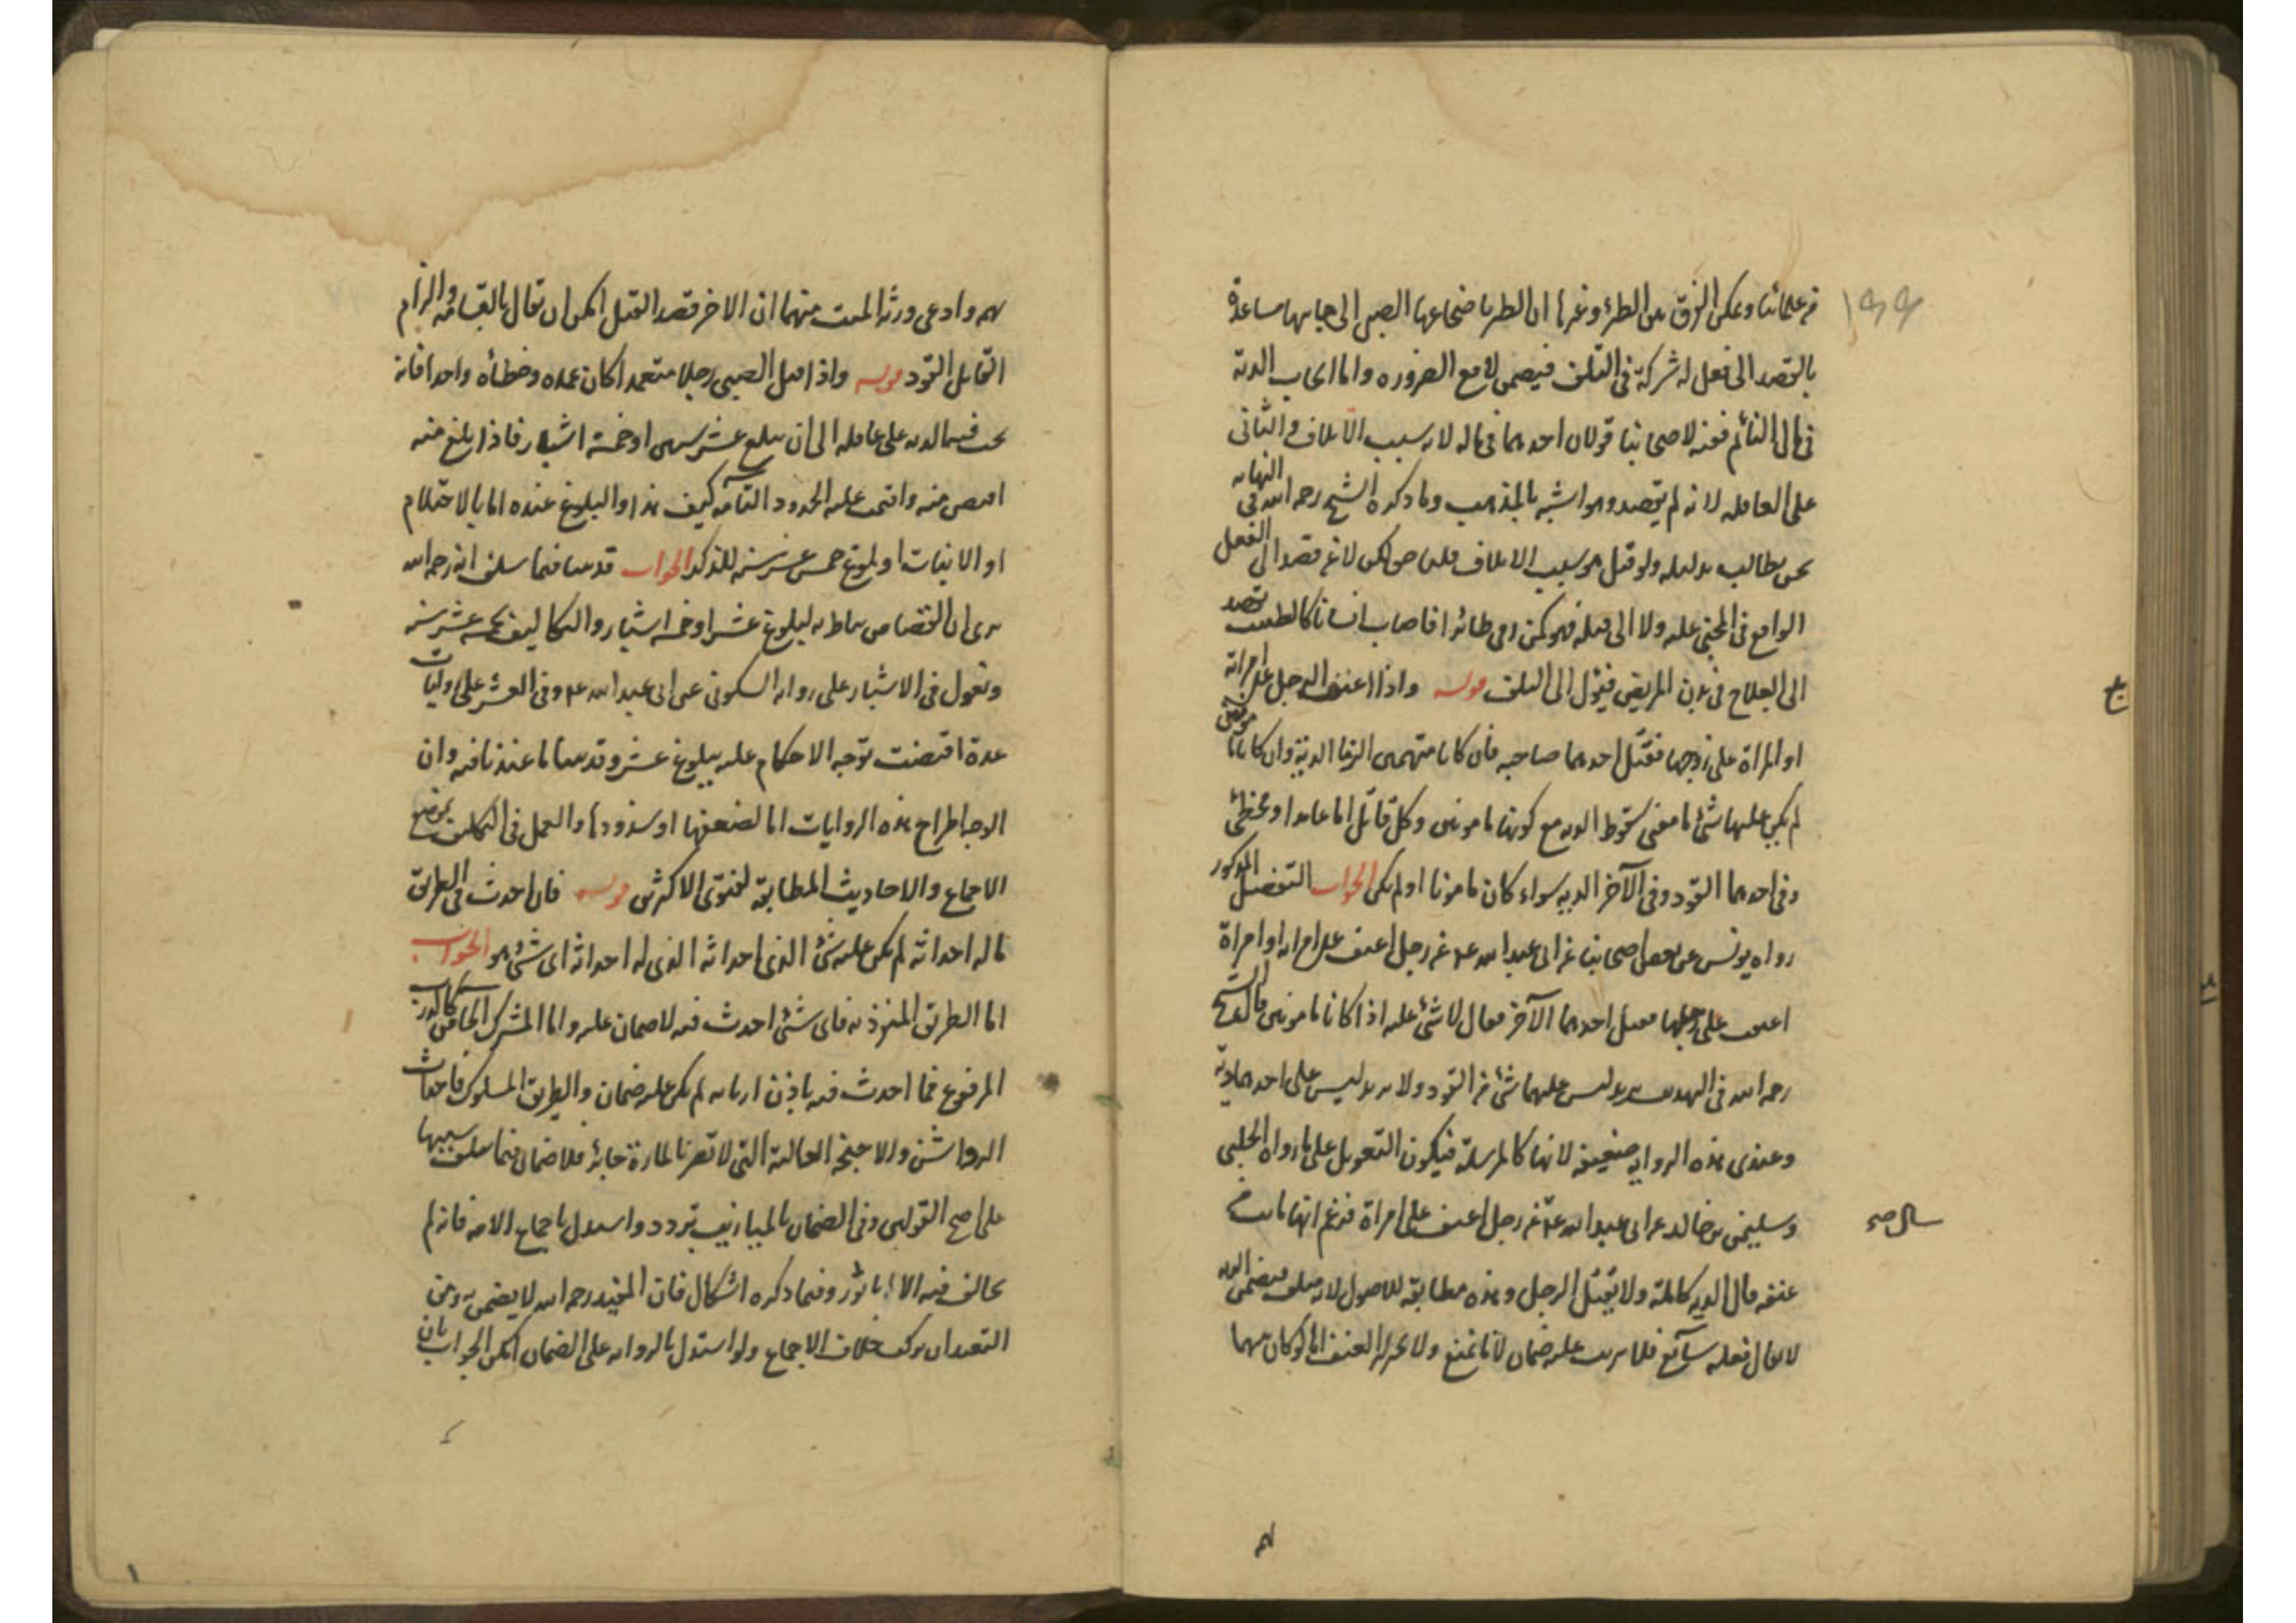 من علمائنا ويمكن الفرق بين الظئر وغيرها ان الظئر باضجاعها الصبي الى جانبها مساعدة
بالقصد الى فعل له شركة في التلف فيضمن لا مع الضرورة واما ايجاب الدية
في مال النائم ففيه لاصحابنا قولان احدهما في ماله لانه سبب الاتلاف والثاني
على العاقلة لانه لم يقصد وهو اشبه بالمذهب وما ذكره الشيخ رحمه الله في النهاية
نحن نطالب بدليله ولو قيل هو سبب الاتلاف قلنا حق لكن لا عن قصد الى الفعل
الواقع في المجني عليه ولا الى قتله فهو كمن رمى طائرا فاصاب انسانا كالطبيب يقصد
الى العلاج في بدن المريض فيؤل الى التلف قوله واذا اعنف الرجل على امراته
او المراة على زوجها فقتل احدهما صاحبه فان كانا متهمين الزما الدية وان كانا مامونين
لم يكن عليهما شئ ما معنى سقوط الدية مع كونهما مامونين وكل قاتل اما عامدا او مخطئ
وفي احدهما القود وفي الآخر الدية سواء كان مامونا او لم يكن الجواب التفصيل المذكور
رواه يونس عن بعض اصحابنا عن ابي عبد الله عم عن رجل اعنف على امراته او امراة
اعنفت على زوجها فقتل احدهما الآخر فقال لا شئ عليه اذا كانا مامونين قال الشيخ
رحمه الله في التهذيب يريد ليس عليهما شئ من القود ولا يريد ليس على احدهما دية
وعندي هذه الرواية ضعيفة لانها كالمرسلة فيكون التعويل على ما رواه الحلبي
وسليمن بن خالد عن ابي عبد الله عم عن رجل اعنف على امراة فزعم انها ماتت من
عنفه قال الدية كاملة ولا يقتل الرجل وهذه مطابقة للاصول لانه تلف فيضمن الدية
لا يقال فعله سائغ فلا يترتب عليه ضمان لانا نمنع ولا نجيز له العنف اما لو كان بينهما
سال صح
تهمة وادعى ورثة الميت منهما ان الاخر قصد القتل امكن ان يقال بالقسامة والزام
القاتل القود قوله واذا قتل الصبي رجلا متعمدا كان عمده وخطأه واحدا فانه
يجب فيه الدية على عاقلته الى ان يبلغ عشر سنين او خمسة اشبار فاذا بلغ منه
اقتص منه واقيمت عليه الحدود التامة كيف هذا والبلوغ عنده اما بالاحتلام
او الانبات او بلوغ خمس عشر سنة للذكر الجواب قد بينا فيما سلف انه رحمه الله
يرى ان القصاص يناط به لبلوغ عشر او خمسة اشبار والتكاليف بخمسة عشر سنة
ونعول في الاشبار على رواية السكوني عن ابي عبد الله عم وفي العشر على روايات
عدة اقتضت توجه الاحكام عليه ببلوغ عشر وقد بينا ما عندنا فيه وان
الوجه اطراح هذه الروايات اما لضعفها او شذوذها والعمل في التكليف بموضع
الاجماع والاحاديث المطابقة لفتوى الاكثرين قوله فان احدث في الطريق
ما له احداثه لم يكن عليه شئ الذي احداثه الذي له احداثه اى شئ هو الجواب
اما الطريق المنفرد به فاى شئ احدث فيه لا ضمان عليه واما المشترك الخاص كالدرب
المرفوع فما احدث فيه باذن اربابه لم يكن عليه ضمان والطريق المسلوك فاحداث
الرواشن والاجنحة العالية التي لا تضر بالمارة جائز فلا ضمان فيما يتلف بسببها
على اصح القولين وفي الضمان بالميازيب تردد واستدل باجماع الامة فانه لم
يخالف فيه الا ابا ثور وفيما ذكره اشكال فان المفيد رحمه الله لا يضمن به ومن
البعيد ان يركب خلاف الاجماع ولو استدل بالرواية على الضمان امكن الجواب بان